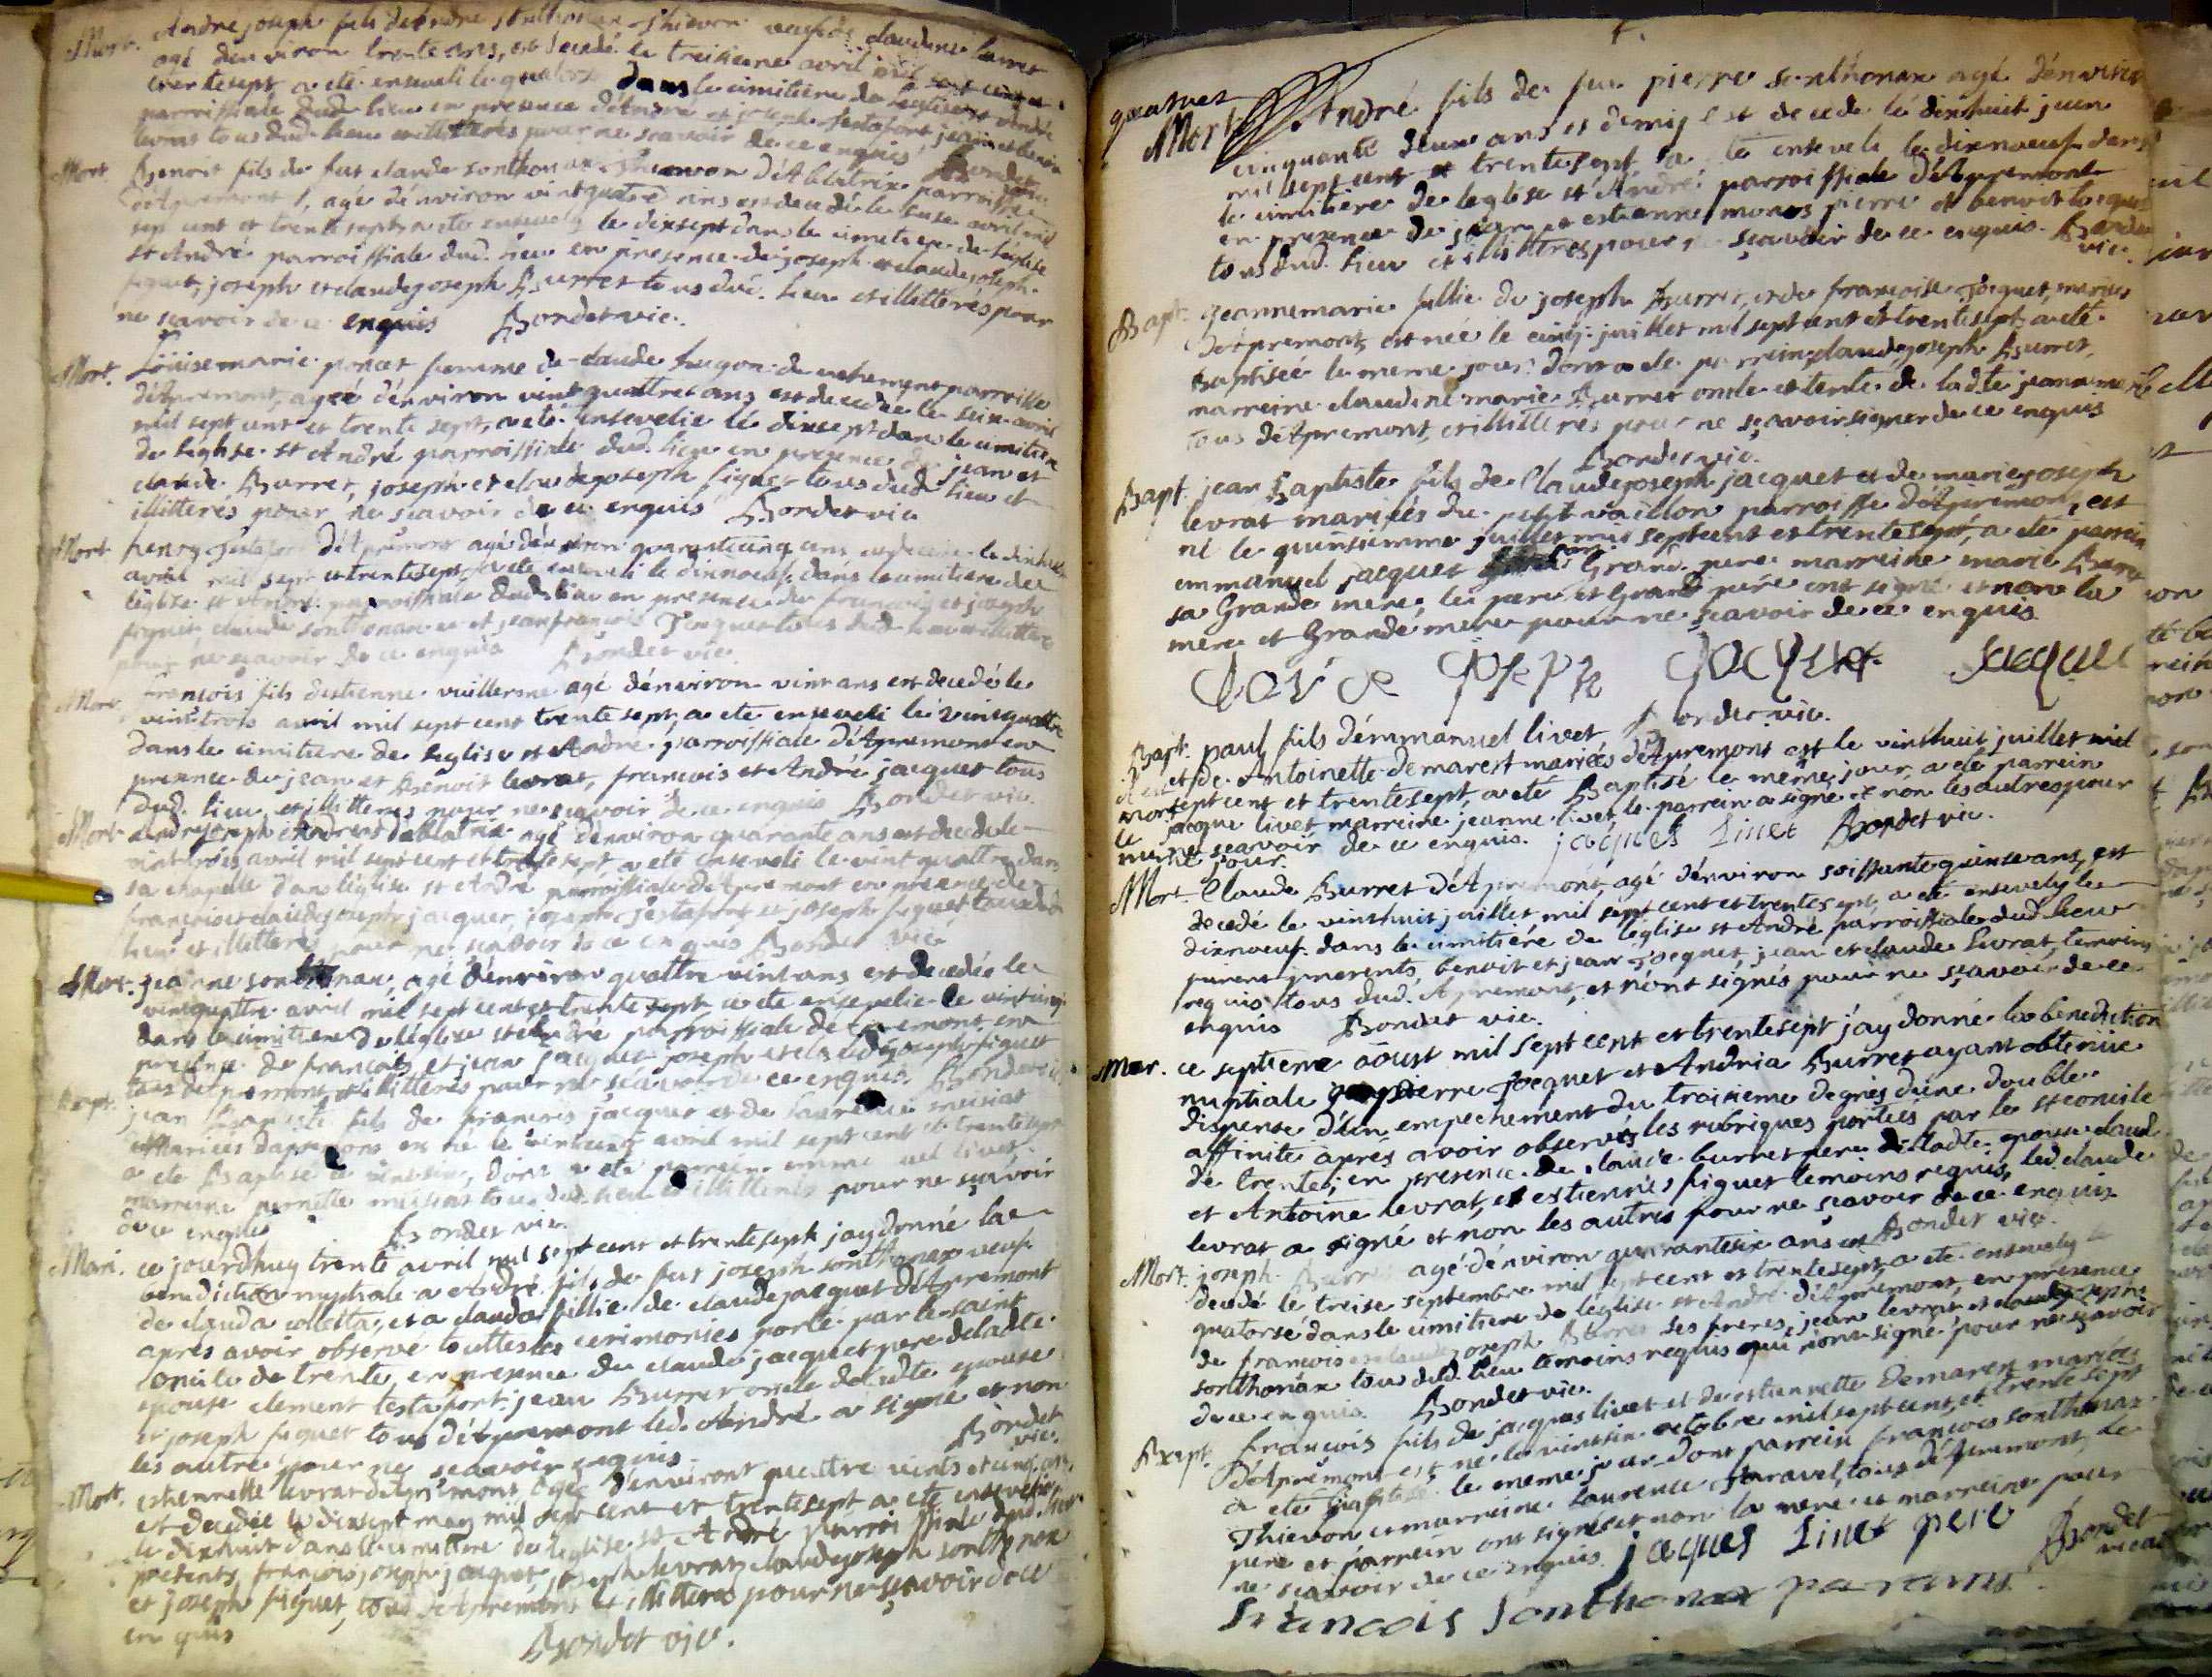 Mort. André joseph fils d'Andre sonthonax thievon veuf de claudine burret
agé denviron trente ans, est decedé le treisieme avril mil sept cent et
trentesept, a eté enseveli le quatorse dans le cimitiere de leglise st André
parroissiale dud. lieu en presence d'André et joseph testafort, jean et benoit
levrat tous dud. lieu et illitterés pour ne sçavoir de ce enquis Bondet
Mort Benoit fils de fut claude sonthonax thievon d'Ablatrix parroisse
d'Apremont, agé dénviron vint quatre ans est decedé le seise avril mil
sept cent et trente sept, a eté ensevely le dixsept dans le cimitiere de l'eglise
st André parroissiale dud. lieu en presence de joseph et claude joseph
figuet, joseph et claudejoseph Burret tous dud. lieu et illitterés pour
ne scavoir de ce enquis Bondet vic.
Mort. Loüise marie poncet femme de claude hugon de parroisse
d'Apremont, agéé dénviron vint quattre ans est decedée le seise avril
mil sept cent et trente sept, a eté ensevelie le dixsept dans le cimitiere
de l'eglise st André parroissiale dud. lieu en presence de jean et
claude Burret, joseph et claudejoseph figuet tous dud. lieu et
illitterés pour ne sçavoir de ce enquis Bondet vic
Mort henry testafort d'Apremont agé dénviron quarantecinq ans est decedé le dixhuit
avril mil sept et trentesept, a eté enseveli le dixneuf dans le cimitiere de
léglise st André parroissiale dud. lieu en presence de francois et joseph
figuet, claude sonthonax et jeanfrancois jacquet tous dud. lieu et illitterés
pour ne scavoir de ce enquis Bondet vic.
Mort. francois fils d'estienne vuillerme agé dénviron vint ans est decedé le
vint trois avril mil sept cent trente sept, a eté enseveli le vintquattre
dans le cimitiere de leglise st Andre parroissiale d'Apremont en
presence de jean et Benoit levrat, francois et André jacquet tous
dud. lieu et illitterés pour ne sçavoir de ce enquis Bondet vic.
Mort andrejoseph d'ablatrix agé dénviron quarante ans est decedé le
vint trois avril mil sept cent et trente sept a eté enseveli le vint quattre dans
sa chapelle dans léglise st André parroissiale d'Apremont en presence de
francois et claudejoseph jacquet, joseph testafort et joseph figuet tous dud.
lieu et illitterés pour ne sçavoir de ce enquis Bondet vic
Mort. jeanne sonthonax, agé dénviron quattre vint ans est decedée le
vintquattre avril mil sept cent et trente sept a eté ensevelie le vintcinq
dans le cimitiere de léglise st André parroissiale d'Apremont en
presence de francois et jean jacquet joseph et claudejoseph figuet
tous d'Apremont et illitterés pour ne sçavoir de ce enquis Bondet vic.
Bapt. jean Baptiste fils de francois jacquet et de laurence mussiat
Mariées d'apremont est né le vintcinq avril mil sept cent et trente sept
a eté Baptisé le vintsix, dont a eté parrein emmanuel livet
marreine pernette mussiat tous dud. lieu et illitterés pour ne sçavoir
de ce enquis Bondet vic.
Mari. ce jourdhuy trente avril mil sept cent et trentesept jay donné la
benediction nuptiale a André fils de fut joseph sonthonax veuf
de clauda colletta, et a clauda fillie de claude jacquet d'Apremont
après avoir observé touttes les cerimonies porté par le saint
concile de trente, en presence de claude jacquet pere de ladte
epouse clement testafort jean Burret oncle de ladte epouse
et joseph figuet tous d'Apremont led. André a signé et non
les autre pour ne sçavoir enquis Bondet vic.
Mort. estiennette levrat d'Apremont agée dénviront quattre vints et cinq ans
est decedée le dixsept may mil sept cent et trentesept a eté ensevelie
le dixhuit dans le cimitiere de leglise st André parroissiale dud. lieu
presents, francois joseph jacquet, joseph levrat, claudejoseph sonthonax
et joseph figuet, tous d'Apremont et illitterés pour ne sçavoir de ce
enquis Bondet vic.
4.
quatres
Mort André fils de fut pierre sonthonax agé dénviron
cinquante deux ans et demig est decedé le dixhuit juin
mil sept cent et trentesept a eté enseveli le dixneuf dans
le cimitiere de leglise st André parroissiale d'Apremont
en presence de jean et estienne monos pierre et benoit jacquet
tous dud. lieu et illitterés pour ne sçavoir de ce enquis. Bondet
vic.
Bapt. jeannemarie fillie de joseph Burret, et de francoise jacquet, mariés
d'Apremont, est née le cinq juillet mil sept cent et trentesept, a eté
Baptisée le meme jour, dont a eté parrein, claudejoseph Burret,
marreine claudine marie Burret oncle et tente de ladte jeannemarie
tous d'Apremont, et illitterés pour ne sçavoir signer de ce enquis
Bondet vic.
Bapt. jean Baptiste fils de Claudejoseph jacquet et de mariejoseph
levrat mariées du petit vallon parroisse d'Apremont, est
né le quinsiemme juillet mil septcent et trentesept, a eté parrein
emmanuel jacquet son Grand pere marreine marie Burret
sa Grande mere, les pere et Grand pere ont signé et non la
mere et Grandé mere pour ne sçavoir de ce enquis.
Clav de Joseph Jacquet Jacque
Bondet vic.
Bapt. paul fils démmanuel livet
et de Antoinette demarest mariées d'Apremont est le vinthuit juillet mil
sept cent et trentesept, a eté Baptisé le même jour, a eté parrein
jacque livet marreine jeanne livet, le parrein a signé et non les autres pour
ne sçavoir de ce enquis. jaques Linet Bondet vic.
il est
mort
le
même jour.
Mort. Claude Burret d'Apremont, agé dénviron soissantequinse ans, est
decedé le vinthuit juillet mil sept cent et trentesept, a eté ensevely le
dixneuf dans le cimitiére de léglise st André parroissiale dud. lieu
furent presents, benoit et jean jacquet, jean et claude levrat, temoins
requis tous dud. Apremont, et nónt signés pour ne sçavoir de ce
enquis Bondet vic.
Mar. ce septieme aôust mil sept cent et trentesept jáy donné la benediction
nuptiale a pierre jacquet et Andria Burret ayant obtenüe
dispense d'un empechement du troisieme degrés dúne double
affinité aprés avoir observés les rubriques portées par le st concile
de trente, en presence de claude burret pere de ladte. epouse claude
et Antoine levrat, et estiennes figuet temoins requis, led. claude
levrat a signé et non les autres pour ne sçavoir de ce enquis
Bondet vic.
Mort. joseph Burret agé dénviron quarantesix ans est
decedé le treise septembre mil sept cent et trentesept, a eté ensevely le
quatorse dans le cimitiere de léglise st André d'Apremont, en presence
de francois et claudejoseph Burret ses freres, jean levrat et claudejoseph
sonthonax tous dud. lieu temoins requis qui nónt signé pour ne sçavoir
de ce enquis. Bondet vic.
Bapt. francois fils de jacques livet et de estiennette demarest mariées
d'Apremont est né le vintsix octobre mil sept cent, et trente sept
a eté baptisé le meme jour dont parrein francois sonthonax
Thievon et marreine laurence tous d'Apremont, le
pere et parrein ont signés et non la mere et marreine pour
ne sçavoir de ce enquis. jaques Linet pere Bondet
vicaire
francois Sonthonax parrain